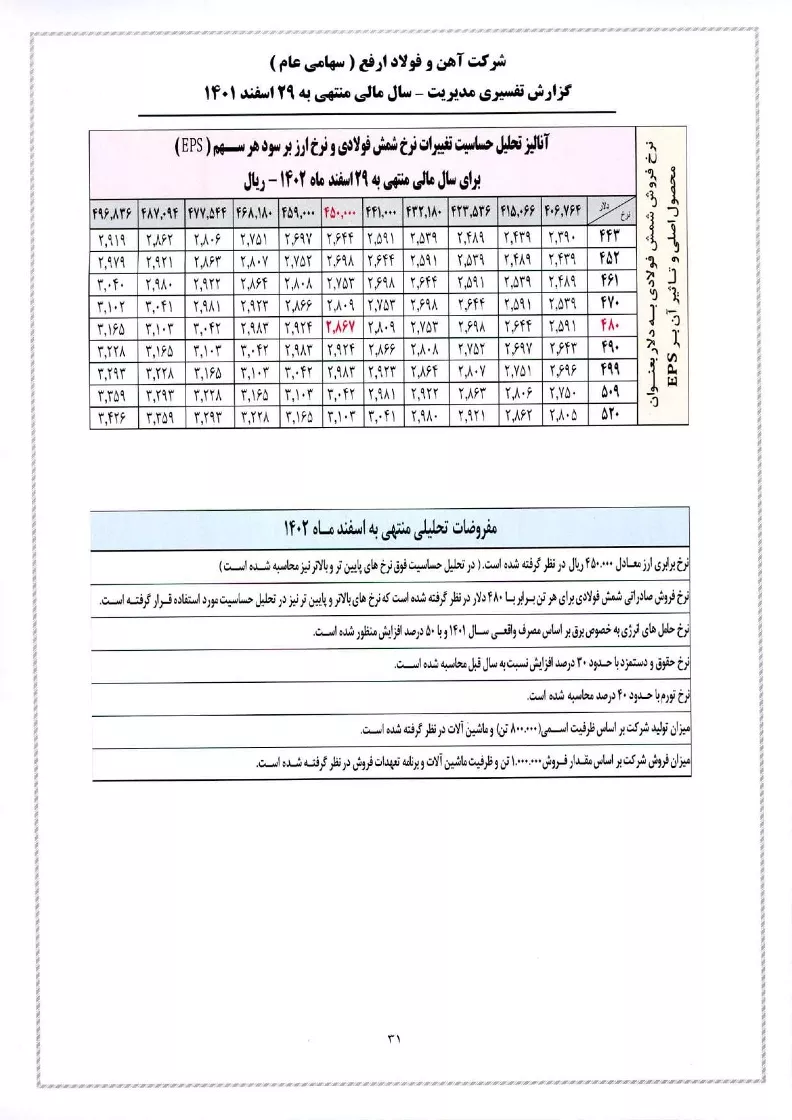 شرکت آهن و فولاد ارفع ( سهامی عام )
گزارش تفسیری مدیریت - سال مالی منتهی به ۲۹ اسفند ۱۴۰۱
آنالیز تحلیل حساسیت تغییرات نرخ شمش فولادی و نرخ ارز بر سود هر سهم ( EPS )
برای سال مالی منتهی به ۲۹ اسفند ماه ۱۴۰۲ - ریال
نرخ فروش شمش فولادی به دلار بعنوان
محصول اصلی و تاثیر آن بر EPS
دلار
نرخ
۴۰۶,۷۶۴ ۴۱۵,۰۶۶ ۴۲۳,۵۳۶ ۴۳۲,۱۸۰ ۴۴۱,۰۰۰ ۴۵۰,۰۰۰ ۴۵۹,۰۰۰ ۴۶۸,۱۸۰ ۴۷۷,۵۴۴ ۴۸۷,۰۹۴ ۴۹۶,۸۳۶
۴۴۳ ۲,۳۹۰ ۲,۴۳۹ ۲,۴۸۹ ۲,۵۳۹ ۲,۵۹۱ ۲,۶۴۴ ۲,۶۹۷ ۲,۷۵۱ ۲,۸۰۶ ۲,۸۶۲ ۲,۹۱۹
۴۵۲ ۲,۴۳۹ ۲,۴۸۹ ۲,۵۳۹ ۲,۵۹۱ ۲,۶۴۴ ۲,۶۹۸ ۲,۷۵۲ ۲,۸۰۷ ۲,۸۶۳ ۲,۹۲۱ ۲,۹۷۹
۴۶۱ ۲,۴۸۹ ۲,۵۳۹ ۲,۵۹۱ ۲,۶۴۴ ۲,۶۹۸ ۲,۷۵۳ ۲,۸۰۸ ۲,۸۶۴ ۲,۹۲۲ ۲,۹۸۰ ۳,۰۴۰
۴۷۰ ۲,۵۳۹ ۲,۵۹۱ ۲,۶۴۴ ۲,۶۹۸ ۲,۷۵۳ ۲,۸۰۹ ۲,۸۶۶ ۲,۹۲۳ ۲,۹۸۱ ۳,۰۴۱ ۳,۱۰۲
۴۸۰ ۲,۵۹۱ ۲,۶۴۴ ۲,۶۹۸ ۲,۷۵۳ ۲,۸۰۹ ۲,۸۶۷ ۲,۹۲۴ ۲,۹۸۳ ۳,۰۴۲ ۳,۱۰۳ ۳,۱۶۵
۴۹۰ ۲,۶۴۳ ۲,۶۹۷ ۲,۷۵۲ ۲,۸۰۸ ۲,۸۶۶ ۲,۹۲۴ ۲,۹۸۳ ۳,۰۴۲ ۳,۱۰۳ ۳,۱۶۵ ۳,۲۲۸
۴۹۹ ۲,۶۹۶ ۲,۷۵۱ ۲,۸۰۷ ۲,۸۶۴ ۲,۹۲۳ ۲,۹۸۳ ۳,۰۴۲ ۳,۱۰۳ ۳,۱۶۵ ۳,۲۲۸ ۳,۲۹۳
۵۰۹ ۲,۷۵۰ ۲,۸۰۶ ۲,۸۶۳ ۲,۹۲۲ ۲,۹۸۱ ۳,۰۴۲ ۳,۱۰۳ ۳,۱۶۵ ۳,۲۲۸ ۳,۲۹۳ ۳,۳۵۹
۵۲۰ ۲,۸۰۵ ۲,۸۶۲ ۲,۹۲۱ ۲,۹۸۰ ۳,۰۴۱ ۳,۱۰۳ ۳,۱۶۵ ۳,۲۲۸ ۳,۲۹۳ ۳,۳۵۹ ۳,۴۲۶
مفروضات تحلیلی منتهی به اسفند ماه ۱۴۰۲
نرخ برابری ارز معادل ۴۵۰.۰۰۰ ریال در نظر گرفته شده است. ( در تحلیل حساسیت فوق نرخ های پایین تر و بالاتر نیز محاسبه شده است )
نرخ فروش صادراتی شمش فولادی برای هر تن برابر با ۴۸۰ دلار در نظر گرفته شده است که نرخ های بالاتر و پایین تر نیز در تحلیل حساسیت مورد استفاده قرار گرفته است.
نرخ حامل های انرژی به خصوص برق بر اساس مصرف واقعی سال ۱۴۰۱ و با ۵۰ درصد افزایش منظور شده است.
نرخ حقوق و دستمزد با حدود ۳۰ درصد افزایش نسبت به سال قبل محاسبه شده است.
نرخ تورم با حدود ۴۰ درصد محاسبه شده است.
میزان تولید شرکت بر اساس ظرفیت اسمی(۸۰۰.۰۰۰ تن) و ماشین آلات در نظر گرفته شده است.
میزان فروش شرکت بر اساس مقدار فروش ۱.۰۰۰.۰۰۰ تن و ظرفیت ماشین آلات و برنامه تعهدات فروش در نظر گرفته شده است.
۳۱